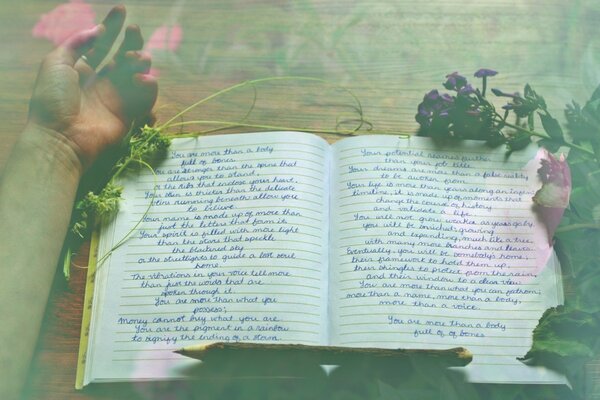 You are more than a body
full of bones.
You are stronger than the spine that
allows you to stand,
or the ribs that enclose your heart.
Your skin is thicker than the delicate
veins running beneath allow you
to believe.
Your name is made up of more than
just the letters that form it.
Your spirit is filled with more light
than the stars that speckle
the blackened sky
or the streetlights to guide a lost soul
home.
The vibrations in your voice tell more
than just the words that are
spoken through it.
You are more than what you
possess;
Money cannot buy what you are.
You are the pigment in a rainbow
to signify the ending of a storm.
Your potential reaches further
than your veil
Your dreams are more than a false reality
to be left behind.
Your life is more than years along an
timeline; it is made up of moments that
change the course of history
and validate a life.
You will not grow weaker as years go by,
you will be enriched, growing
and expanding, much like a tree,
with many more branches and leaves.
Eventually, you will be somebody's home,
their framework to hold them up,
their shingles to protect from the rain,
and their window to a clear day.
You are more than what you can fathom;
more than a name, more than a body,
more than a voice.
You are more than a body
full of of bones